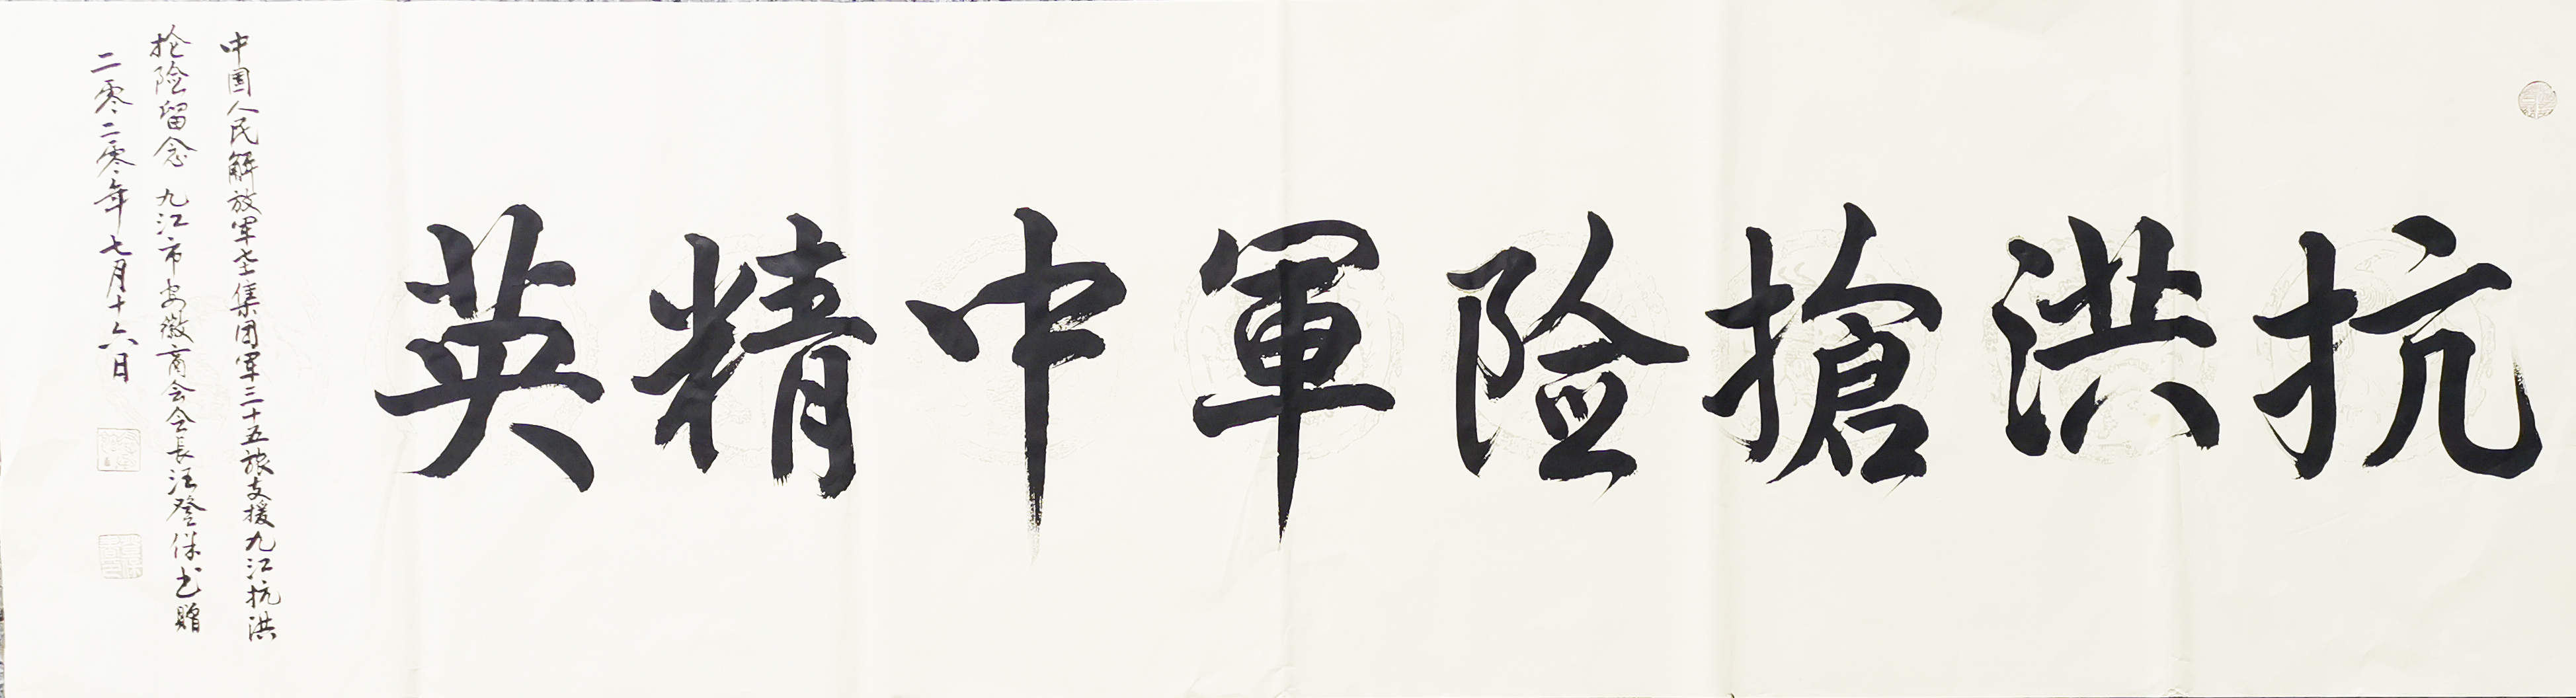 抗洪搶险軍中精英
中国人民解放军七十一集团军三十五旅支援九江抗洪
抢险留念 九江市安徽商会会长汪登保书赠
二零二零年七月十六日